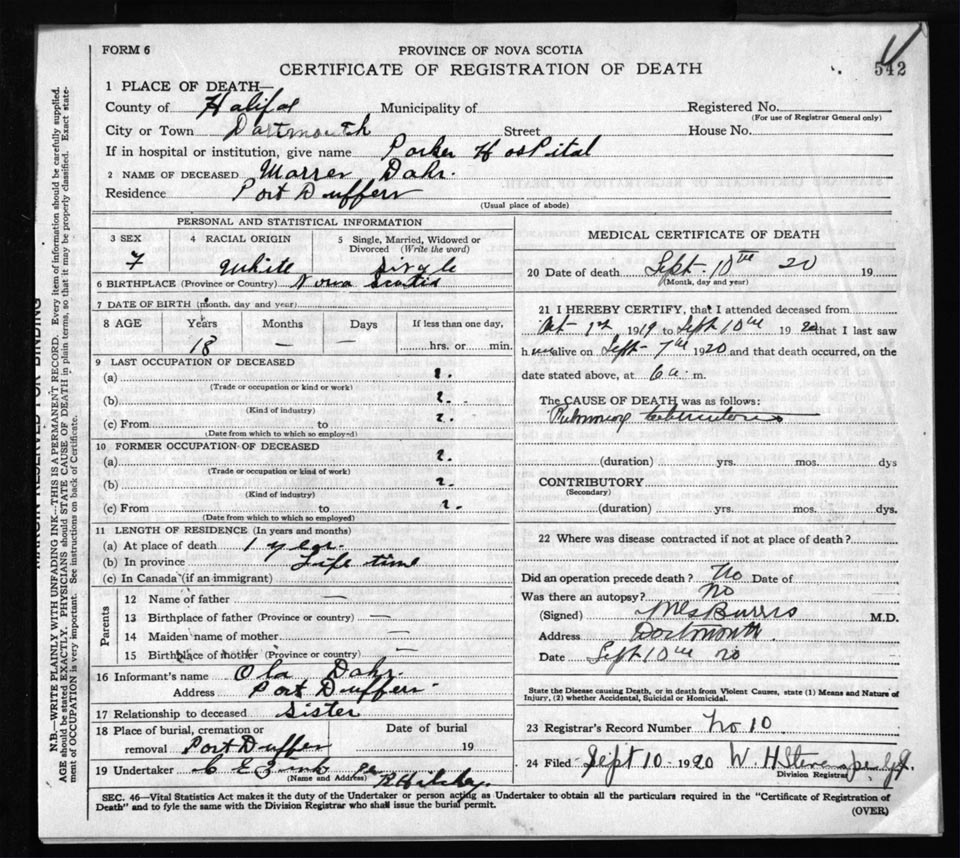 FORM 6
PROVINCE OF NOVA SCOTIA
542
CERTIFICATE OF REGISTRATION OF DEATH
1 PLACE OF DEATH—
County of Halifax Municipality of Registered No.
(For use of Registrar General only)
City or Town Dartmouth Street House No.
If in hospital or institution, give name Parker Hospital
2 NAME OF DECEASED Warren Dahr.
Residence Port Dufferin
(Usual place of abode)
PERSONAL AND STATISTICAL INFORMATION
3 SEX 4 RACIAL ORIGIN 5 Single, Married, Widowed or Divorced (Write the word)
F White Single
6 BIRTHPLACE (Province or Country) Nova Scotia
7 DATE OF BIRTH (month, day and year)
8 AGE Years Months Days If less than one day,
18 — — hrs. or min.
9 LAST OCCUPATION OF DECEASED
(a) ?.
(Trade or occupation or kind of work)
(b) ?.
(Kind of industry)
(c) From to ?.
(Date from which to which so employed)
10 FORMER OCCUPATION OF DECEASED
(a) ?.
(Trade or occupation or kind of work)
(b) ?.
(Kind of industry)
(c) From to ?.
(Date from which to which so employed)
11 LENGTH OF RESIDENCE (In years and months)
(a) At place of death 1 year.
(b) In province Life time
(c) In Canada (if an immigrant)
Parents
12 Name of father —
13 Birthplace of father (Province or country) —
14 Maiden name of mother —
15 Birthplace of mother (Province or country) —
16 Informant's name Ola Dahr.
Address Port Dufferin
17 Relationship to deceased Sister
18 Place of burial, cremation or removal Port Dufferin Date of burial 19
19 Undertaker C E
(Name and Address)
MEDICAL CERTIFICATE OF DEATH
20 Date of death Sept. 10th 20 19
(Month, day and year)
21 I HEREBY CERTIFY, that I attended deceased from
Oct 1st 1919 to Sept 10th 1920 that I last saw
h alive on Sept 7th 1920 and that death occurred, on the
date stated above, at 6 a. m.
The CAUSE OF DEATH was as follows:
Pulmonary tuberculosis
(duration) yrs. mos. dys
CONTRIBUTORY
(Secondary)
(duration) yrs. mos. dys.
22 Where was disease contracted if not at place of death?
Did an operation precede death? No Date of
Was there an autopsy? No
(Signed) M.D.
Address Dartmouth.
Date Sept 10th 20
State the Disease causing Death, or in death from Violent Causes, state (1) Means and Nature of
Injury, (2) whether Accidental, Suicidal or Homicidal.
23 Registrar's Record Number No 10
24 Filed Sept 10 1920 W. H.
Division Registrar
SEC. 46—Vital Statistics Act makes it the duty of the Undertaker or person acting as Undertaker to obtain all the particulars required in the "Certificate of Registration of
Death" and to fyle the same with the Division Registrar who shall issue the burial permit.
(OVER)
MARGIN RESERVED FOR BINDING
N.B.—WRITE PLAINLY WITH UNFADING INK—THIS IS A PERMANENT RECORD. Every item of information should be carefully supplied.
AGE should be stated EXACTLY. PHYSICIANS should STATE CAUSE OF DEATH in plain terms, so that it may be properly classified. Exact state-
ment of OCCUPATION is very important. See instructions on back of Certificate.